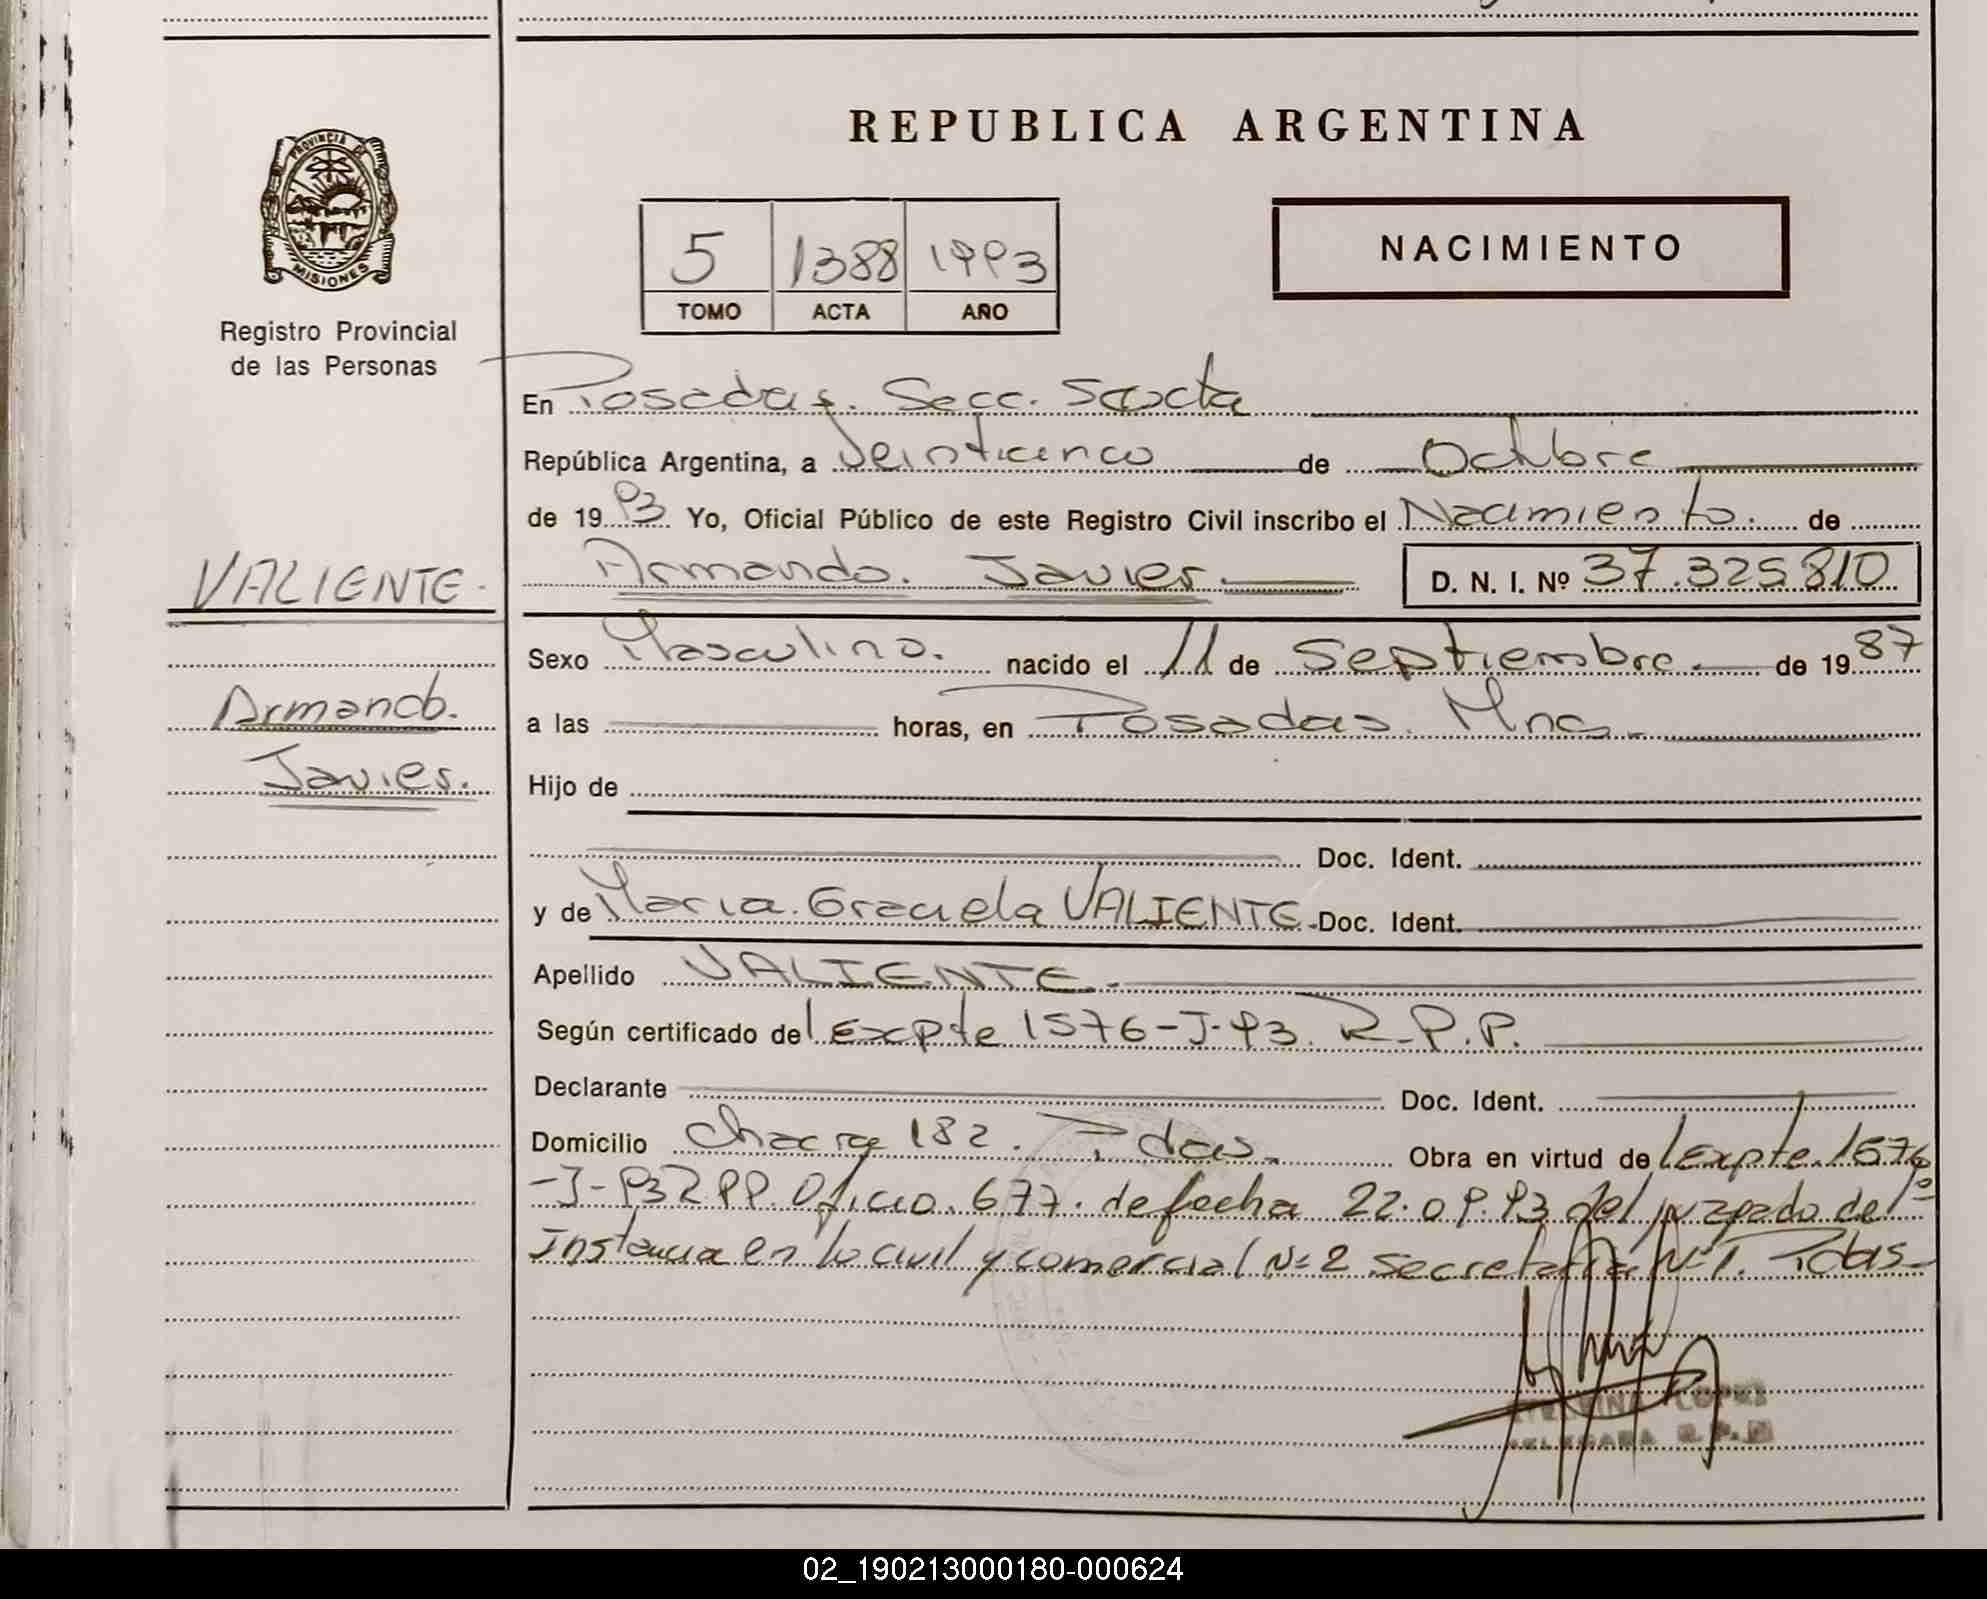 REPUBLICA ARGENTINA
PROVINCIA DE
MISIONES
Registro Provincial
de las Personas
5 1388 1993
TOMO ACTA AÑO
NACIMIENTO
En Posadas. Secc. Sexta
República Argentina, a Veinticinco de Octubre
de 1993 Yo, Oficial Público de este Registro Civil inscribo el Nacimiento. de
VALIENTE.
Armando. Javier. D. N. I. Nº 37.325.810
Sexo Masculino. nacido el 11 de Septiembre. de 1987
Armando.
a las horas, en Posadas. Mnes.
Javier.
Hijo de
Doc. Ident.
y de Maria. Graciela VALIENTE. Doc. Ident.
Apellido VALIENTE.
Según certificado del Expte 1576-J-93. R.P.P.
Declarante Doc. Ident.
Domicilio Chacra 182. Pdas. Obra en virtud del Expte. 1576
-J-93 RPP. Oficio. 677. de fecha 22.09.93 del juzgado de 1º
Instancia en lo civil y comercial Nº 2 Secretaria Nº 1. Pdas.
LOPEZ
R.P.P
02_190213000180-000624